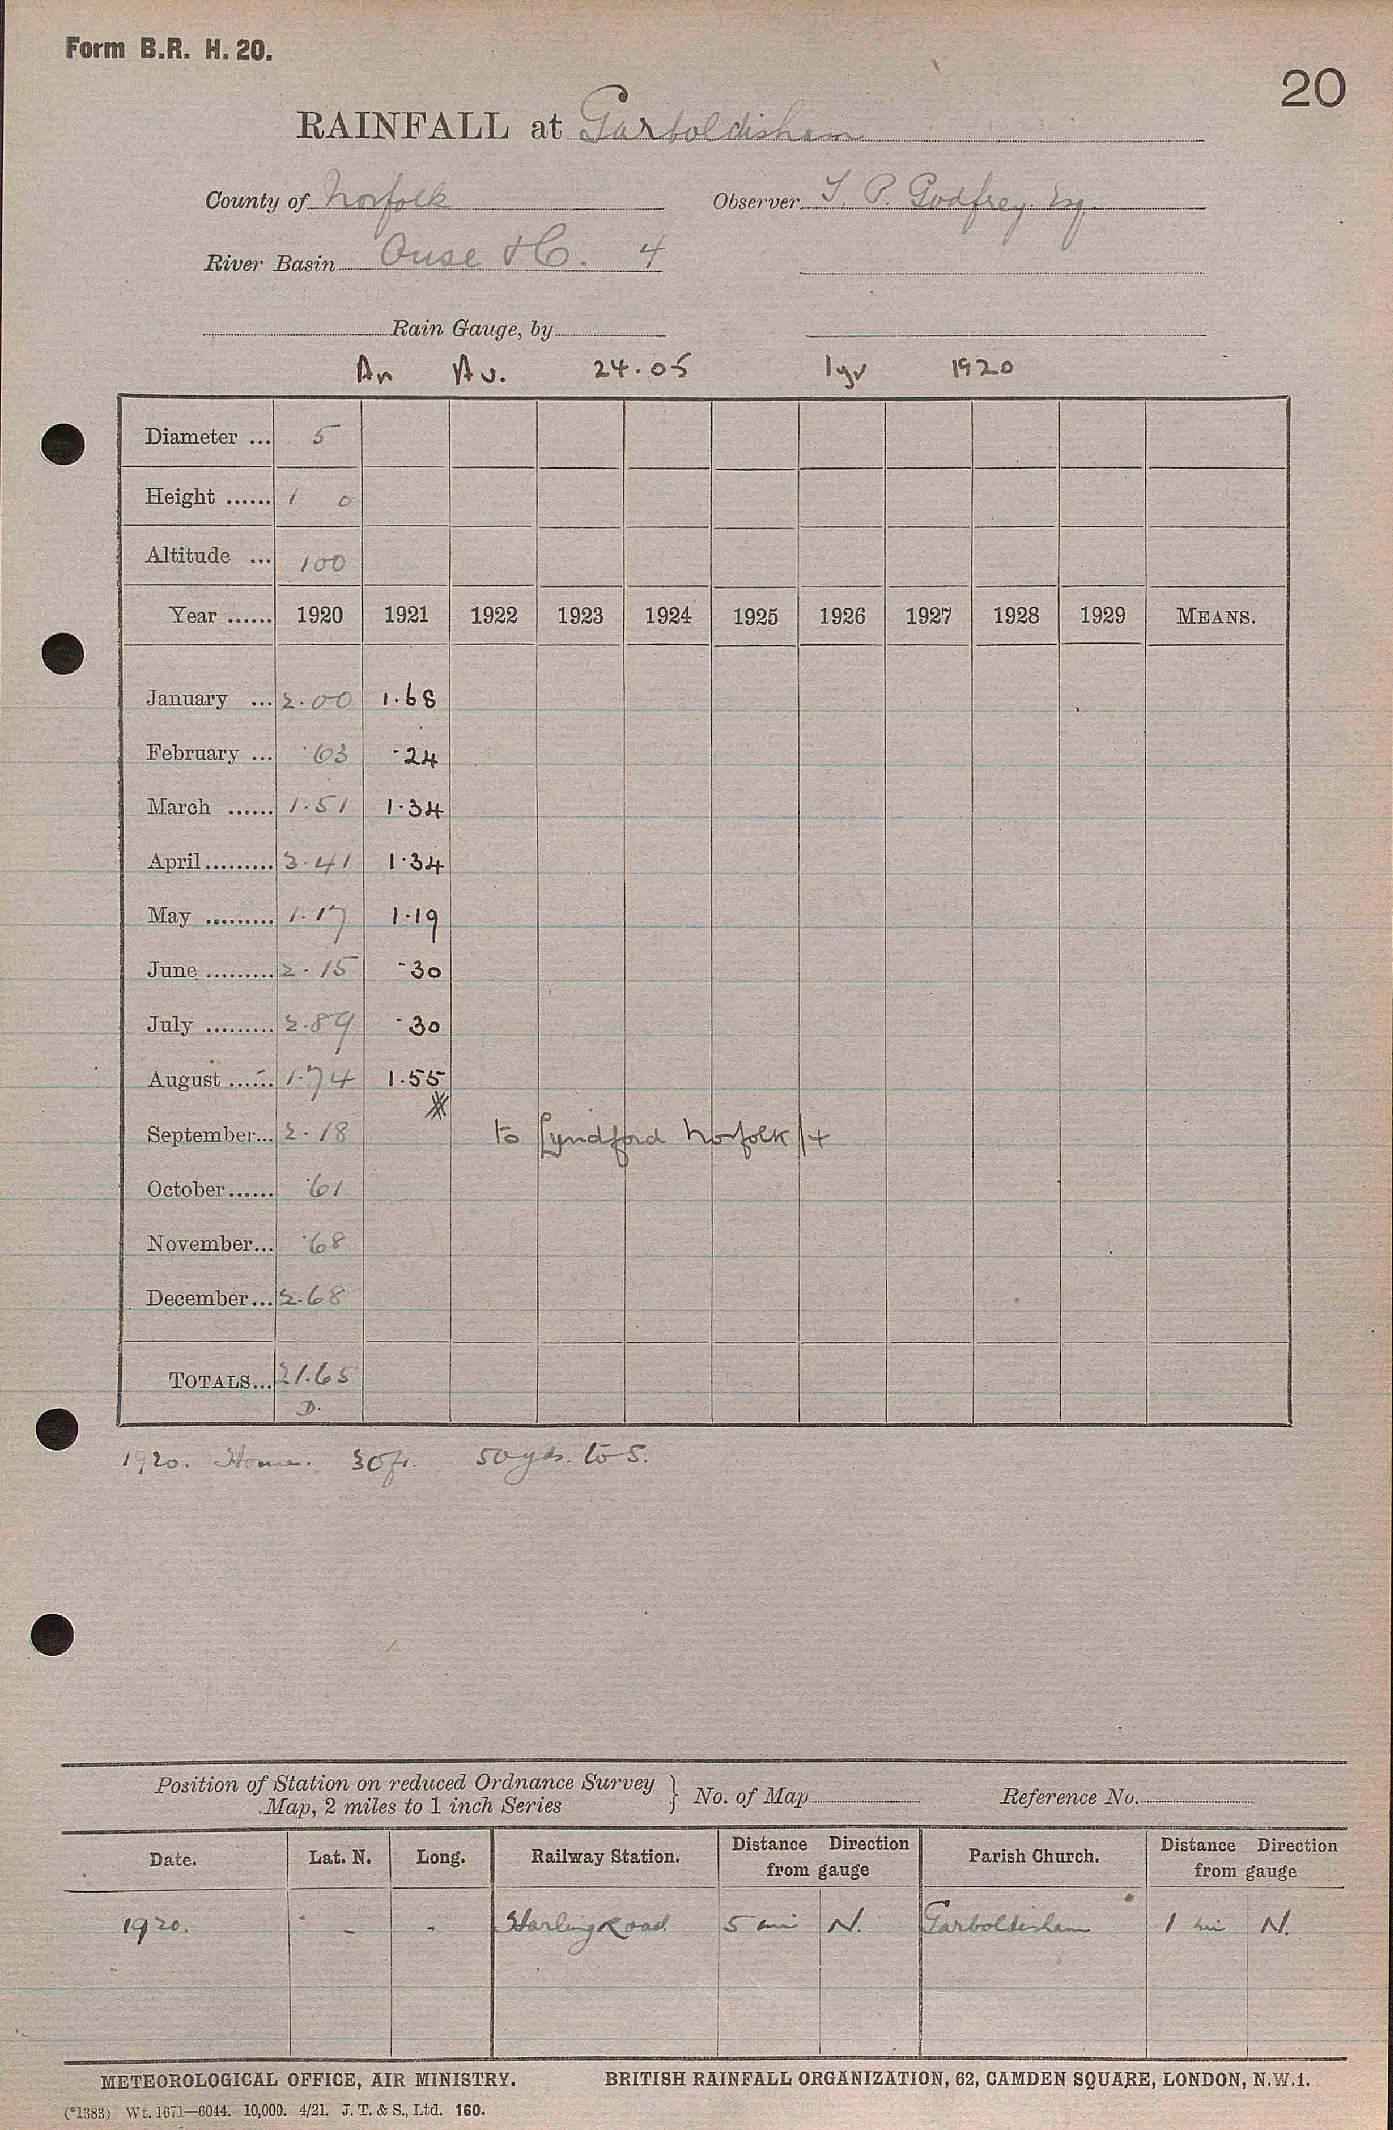 Form B.R. H. 20.
20
RAINFALL at Garboldisham
County of Norfolk Observer T. P. Godfrey. Esq.
River Basin Ouse &C. 4
Rain Gauge, by
An Av. 24.05 1yr 1920
Diameter ... 5
Height ...... 1 0
Altitude ... 100
Year ...... 1920 1921 1922 1923 1924 1925 1926 1927 1928 1929 MEANS.
January ... 2.00 1.68
February ... .63 .24
March ...... 1.51 1.34
April ......... 3.41 1.34
May ......... 1.17 1.19
June ......... 2.15 .30
July ......... 2.89 .30
August ...... 1.74 1.55
September... 2.18 to Lyndford Norfolk 4
October...... .61
November... .68
December... 2.68
TOTALS... 21.65
D.
1920. House. 30ft. 50yds. to S.
Position of Station on reduced Ordnance Survey
Map, 2 miles to 1 inch Series } No. of Map Reference No.
Date. Lat. N. Long. Railway Station. Distance Direction from gauge Parish Church. Distance Direction from gauge
1920. - - - Harling Road 5 mi N. Garboldisham 1 mi N.
METEOROLOGICAL OFFICE, AIR MINISTRY. BRITISH RAINFALL ORGANIZATION, 62, CAMDEN SQUARE, LONDON, N.W.1.
(*1383) Wt. 1671—6044. 10,000. 4/21. J. T. & S., Ltd. 160.